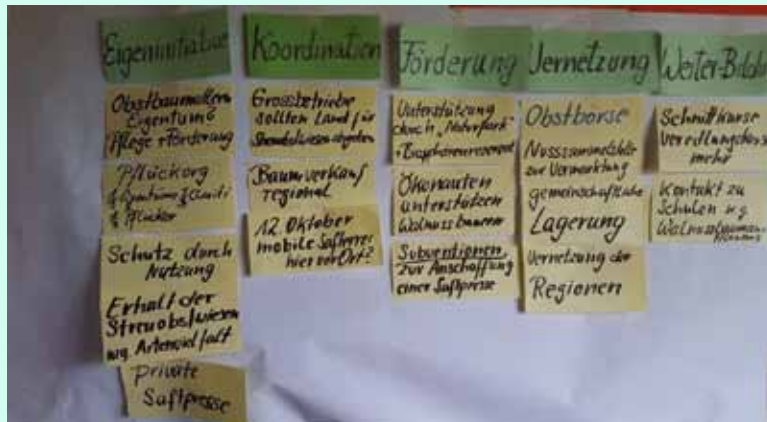 Eigeninitiative
Obstbaumallen
Eigentum
Pflege + Förderung
Pflückorg
Pflücker
Schutz durch
Nutzung
Erhalt der
Streuobstwiesen
wg. Artenvielfalt
private
Saftpresse
Koordination
Grossbetriebe
sollten Land für
abgeben
Baumverkauf
regional
12. Oktober
mobile Safterei
hier vor Ort?
Förderung
Unterstützung
durch "Naturpark"
+ Biosphärenreservat
Ökonauten
unterstützen
Walnussbauern
Subventionen
zur Anschaffung
einer Saftpresse
Vernetzung
Obstbörse
Nusssammelstelle
zur Vermarktung
gemeinschaftliche
Lagerung
Vernetzung der
Regionen
Weiter-Bildung
Schnittkurse
Veredlungskurse
mehr
Kontakt zu
Schulen wg